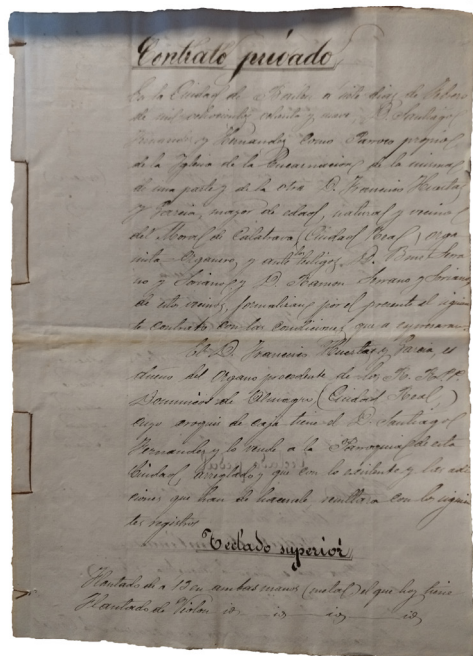 Contrato privado
En la Ciudad de a siete dias de Febrero
de mil ochocientos ochenta y nueve D. Santiago
Fernandez y Fernandez como Parroco propio
de la Iglesia de la Encarnacion de la misma
de una parte y de la otra D. Francisco Huertas
y Garcia, mayor de edad, natural y vecino
del Moral de Calatrava (Ciudad Real) orga
nista Organero, y ante los testigos D. Benito Serra
no y Soriano y D. Ramon Serrano y Soriano
de esta vecinos, formalizan por el presente el siguien
te contrato con las condiciones que a espresaran
El D. Francisco Huertas y Garcia, es
dueño del Organo procedente de los R. R. P. P.
Dominicos de Almagro (Ciudad Real)
cuyo croquis de caja tiene el D. Santiago
Fernandez y lo vende a la Parroquia de esta
Ciudad, arreglado y que con lo existente y las adi
ciones que han de hacerle resultara con los siguien
tes registros
Teclado superior
Flautado de a 13 en ambas manos (metal) el que hoy tiene
Flautado de Violon id id id id